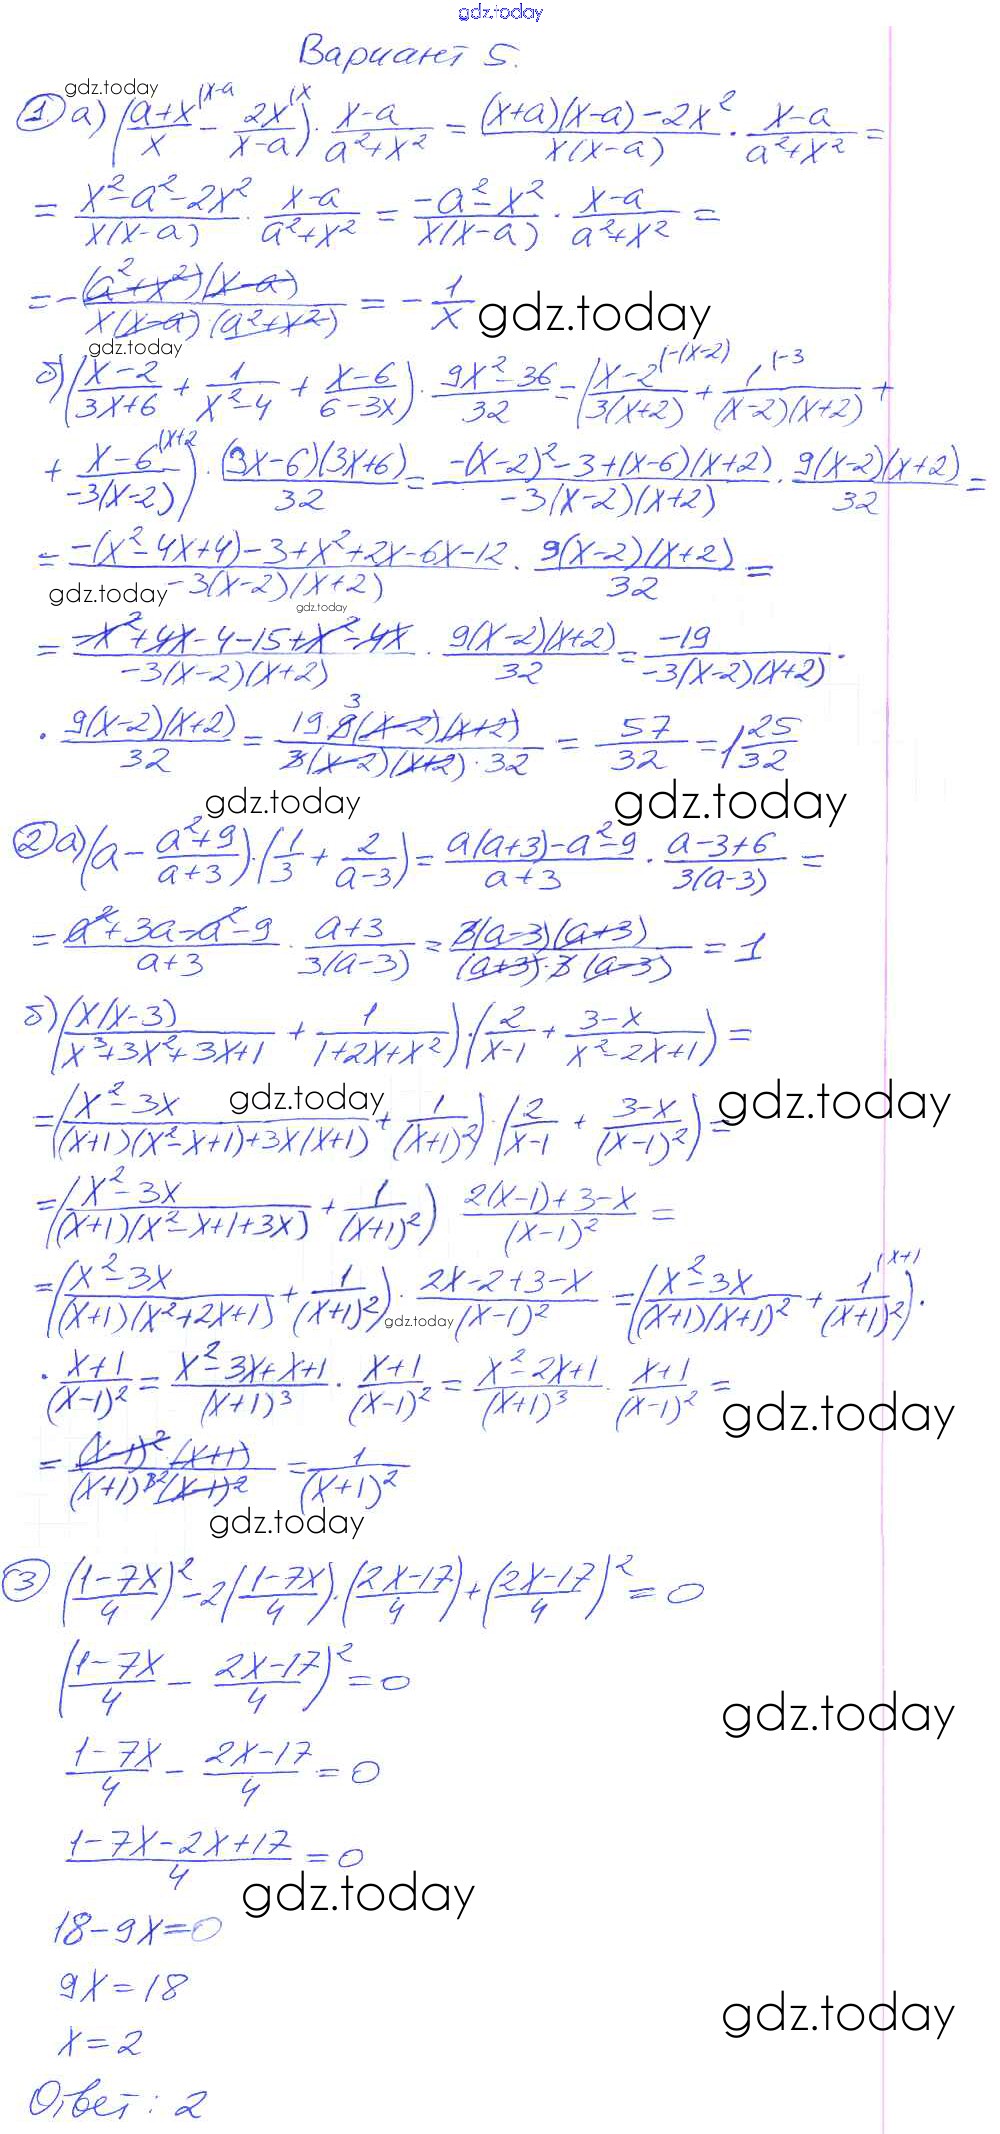 gdz.today
Вариант 5.
gdz.today
① а) ((a+x)/x (x-a - 2x/(x-a) (x) · (x-a)/(a²+x²) = ((x+a)(x-a)-2x²)/(x(x-a)) · (x-a)/(a²+x²) =
= (x²-a²-2x²)/(x(x-a)) · (x-a)/(a²+x²) = (-a²-x²)/(x(x-a)) · (x-a)/(a²+x²) =
= - ((a²+x²)(x-a))/(x(x-a)(a²+x²)) = - 1/x gdz.today
gdz.today
б) ((x-2)/(3x+6) + 1/(x²-4) + (x-6)/(6-3x)) · (9x²-36)/32 = ((x-2)/(3(x+2)) (-(x-2) + 1/((x-2)(x+2)) (-3 +
+ (x-6)/(-3(x-2)) (x+2) · ((3x-6)(3x+6))/32 = (-(x-2)²-3+(x-6)(x+2))/(-3(x-2)(x+2)) · (9(x-2)(x+2))/32 =
= (-(x²-4x+4)-3+x²+2x-6x-12)/(-3(x-2)(x+2)) · (9(x-2)(x+2))/32 =
gdz.today
gdz.today
= (-x²+4x-4-15+x²-4x)/(-3(x-2)(x+2)) · (9(x-2)(x+2))/32 = -19/(-3(x-2)(x+2)) ·
· (9(x-2)(x+2))/32 = (19·9(x-2)(x+2))/(3(x-2)(x+2)·32) 3 = 57/32 = 1 25/32
gdz.today gdz.today
② а) (a - (a²+9)/(a+3)) · (1/3 + 2/(a-3)) = (a(a+3)-a²-9)/(a+3) · (a-3+6)/(3(a-3)) =
= (a²+3a-a²-9)/(a+3) · (a+3)/(3(a-3)) = (3(a-3)(a+3))/((a+3)·3(a-3)) = 1
б) ((x(x-3))/(x³+3x²+3x+1) + 1/(1+2x+x²)) · (2/(x-1) + (3-x)/(x²-2x+1)) =
gdz.today gdz.today
= ((x²-3x)/((x+1)(x²-x+1)+3x(x+1)) + 1/((x+1)²)) · (2/(x-1) + (3-x)/((x-1)²)) =
= ((x²-3x)/((x+1)(x²-x+1+3x)) + 1/((x+1)²)) (2(x-1)+3-x)/((x-1)²) =
= ((x²-3x)/((x+1)(x²+2x+1)) + 1/((x+1)²)) · (2x-2+3-x)/((x-1)²) = ((x²-3x)/((x+1)(x+1)²) + 1/((x+1)²) (x+1) ·
gdz.today
· (x+1)/((x-1)²) = (x²-3x+x+1)/((x+1)³) · (x+1)/((x-1)²) = (x²-2x+1)/((x+1)³) · (x+1)/((x-1)²) =
gdz.today
= ((x-1)²·(x+1))/((x+1)³ ²(x-1)²) = 1/((x+1)²)
gdz.today
③ ((1-7x)/4)² - 2((1-7x)/4) · ((2x-17)/4) + ((2x-17)/4)² = 0
((1-7x)/4 - (2x-17)/4)² = 0
gdz.today
(1-7x)/4 - (2x-17)/4 = 0
(1-7x-2x+17)/4 = 0
gdz.today
18-9x=0
9x=18
gdz.today
x=2
Ответ: 2